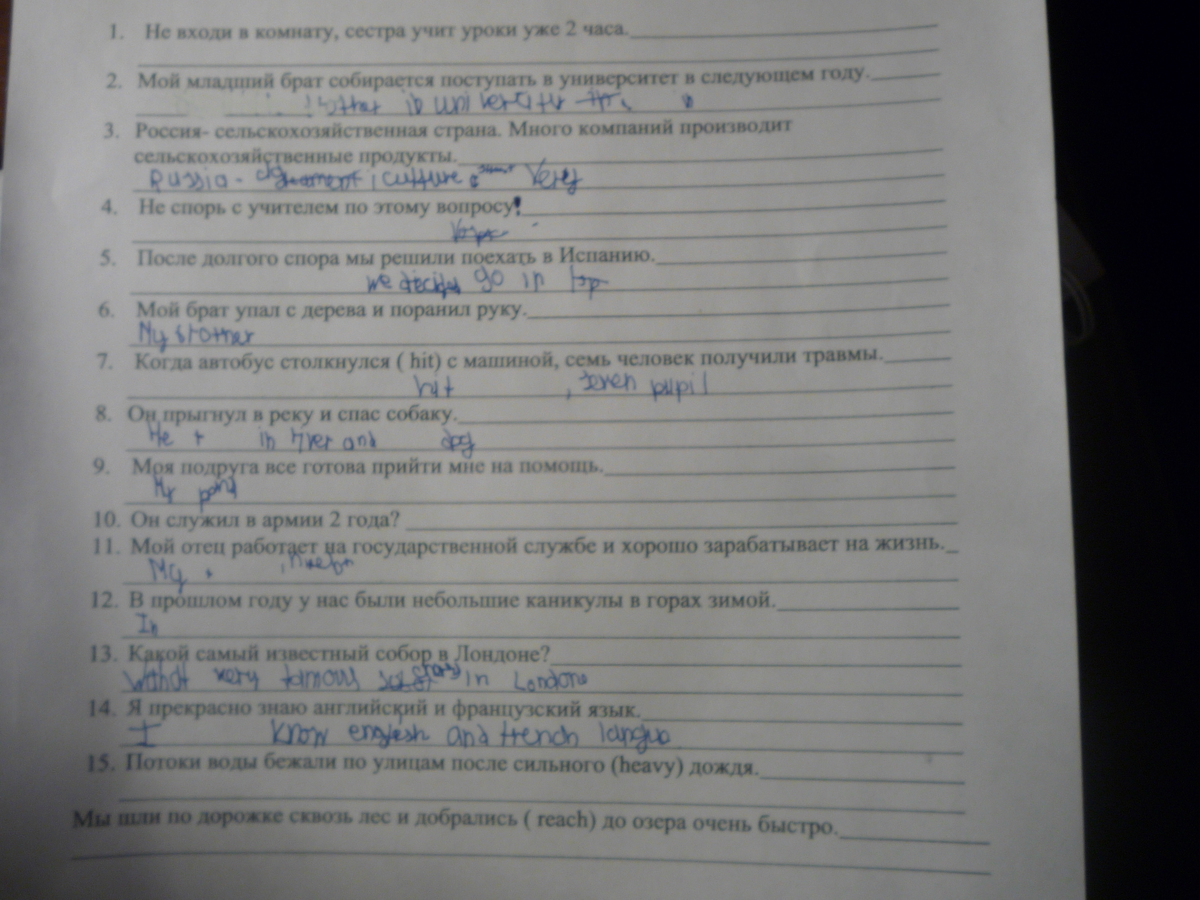 1. Не входи в комнату, сестра учит уроки уже 2 часа.
2. Мой младший брат собирается поступать в университет в следующем году.
3. Россия- сельскохозяйственная страна. Много компаний производит
сельскохозяйственные продукты.
Russia - culture Very
4. Не спорь с учителем по этому вопросу!
5. После долгого спора мы решили поехать в Испанию.
we go in
6. Мой брат упал с дерева и поранил руку.
My brother
7. Когда автобус столкнулся ( hit) с машиной, семь человек получили травмы.
hit , seven pupil
8. Он прыгнул в реку и спас собаку.
He in river and dog
9. Моя подруга все готова прийти мне на помощь.
My
10. Он служил в армии 2 года?
11. Мой отец работает на государственной службе и хорошо зарабатывает на жизнь.
My
12. В прошлом году у нас были небольшие каникулы в горах зимой.
In
13. Какой самый известный собор в Лондоне?
very famous in Londone
14. Я прекрасно знаю английский и французский язык.
I know english and french
15. Потоки воды бежали по улицам после сильного (heavy) дождя.
Мы шли по дорожке сквозь лес и добрались ( reach) до озера очень быстро.